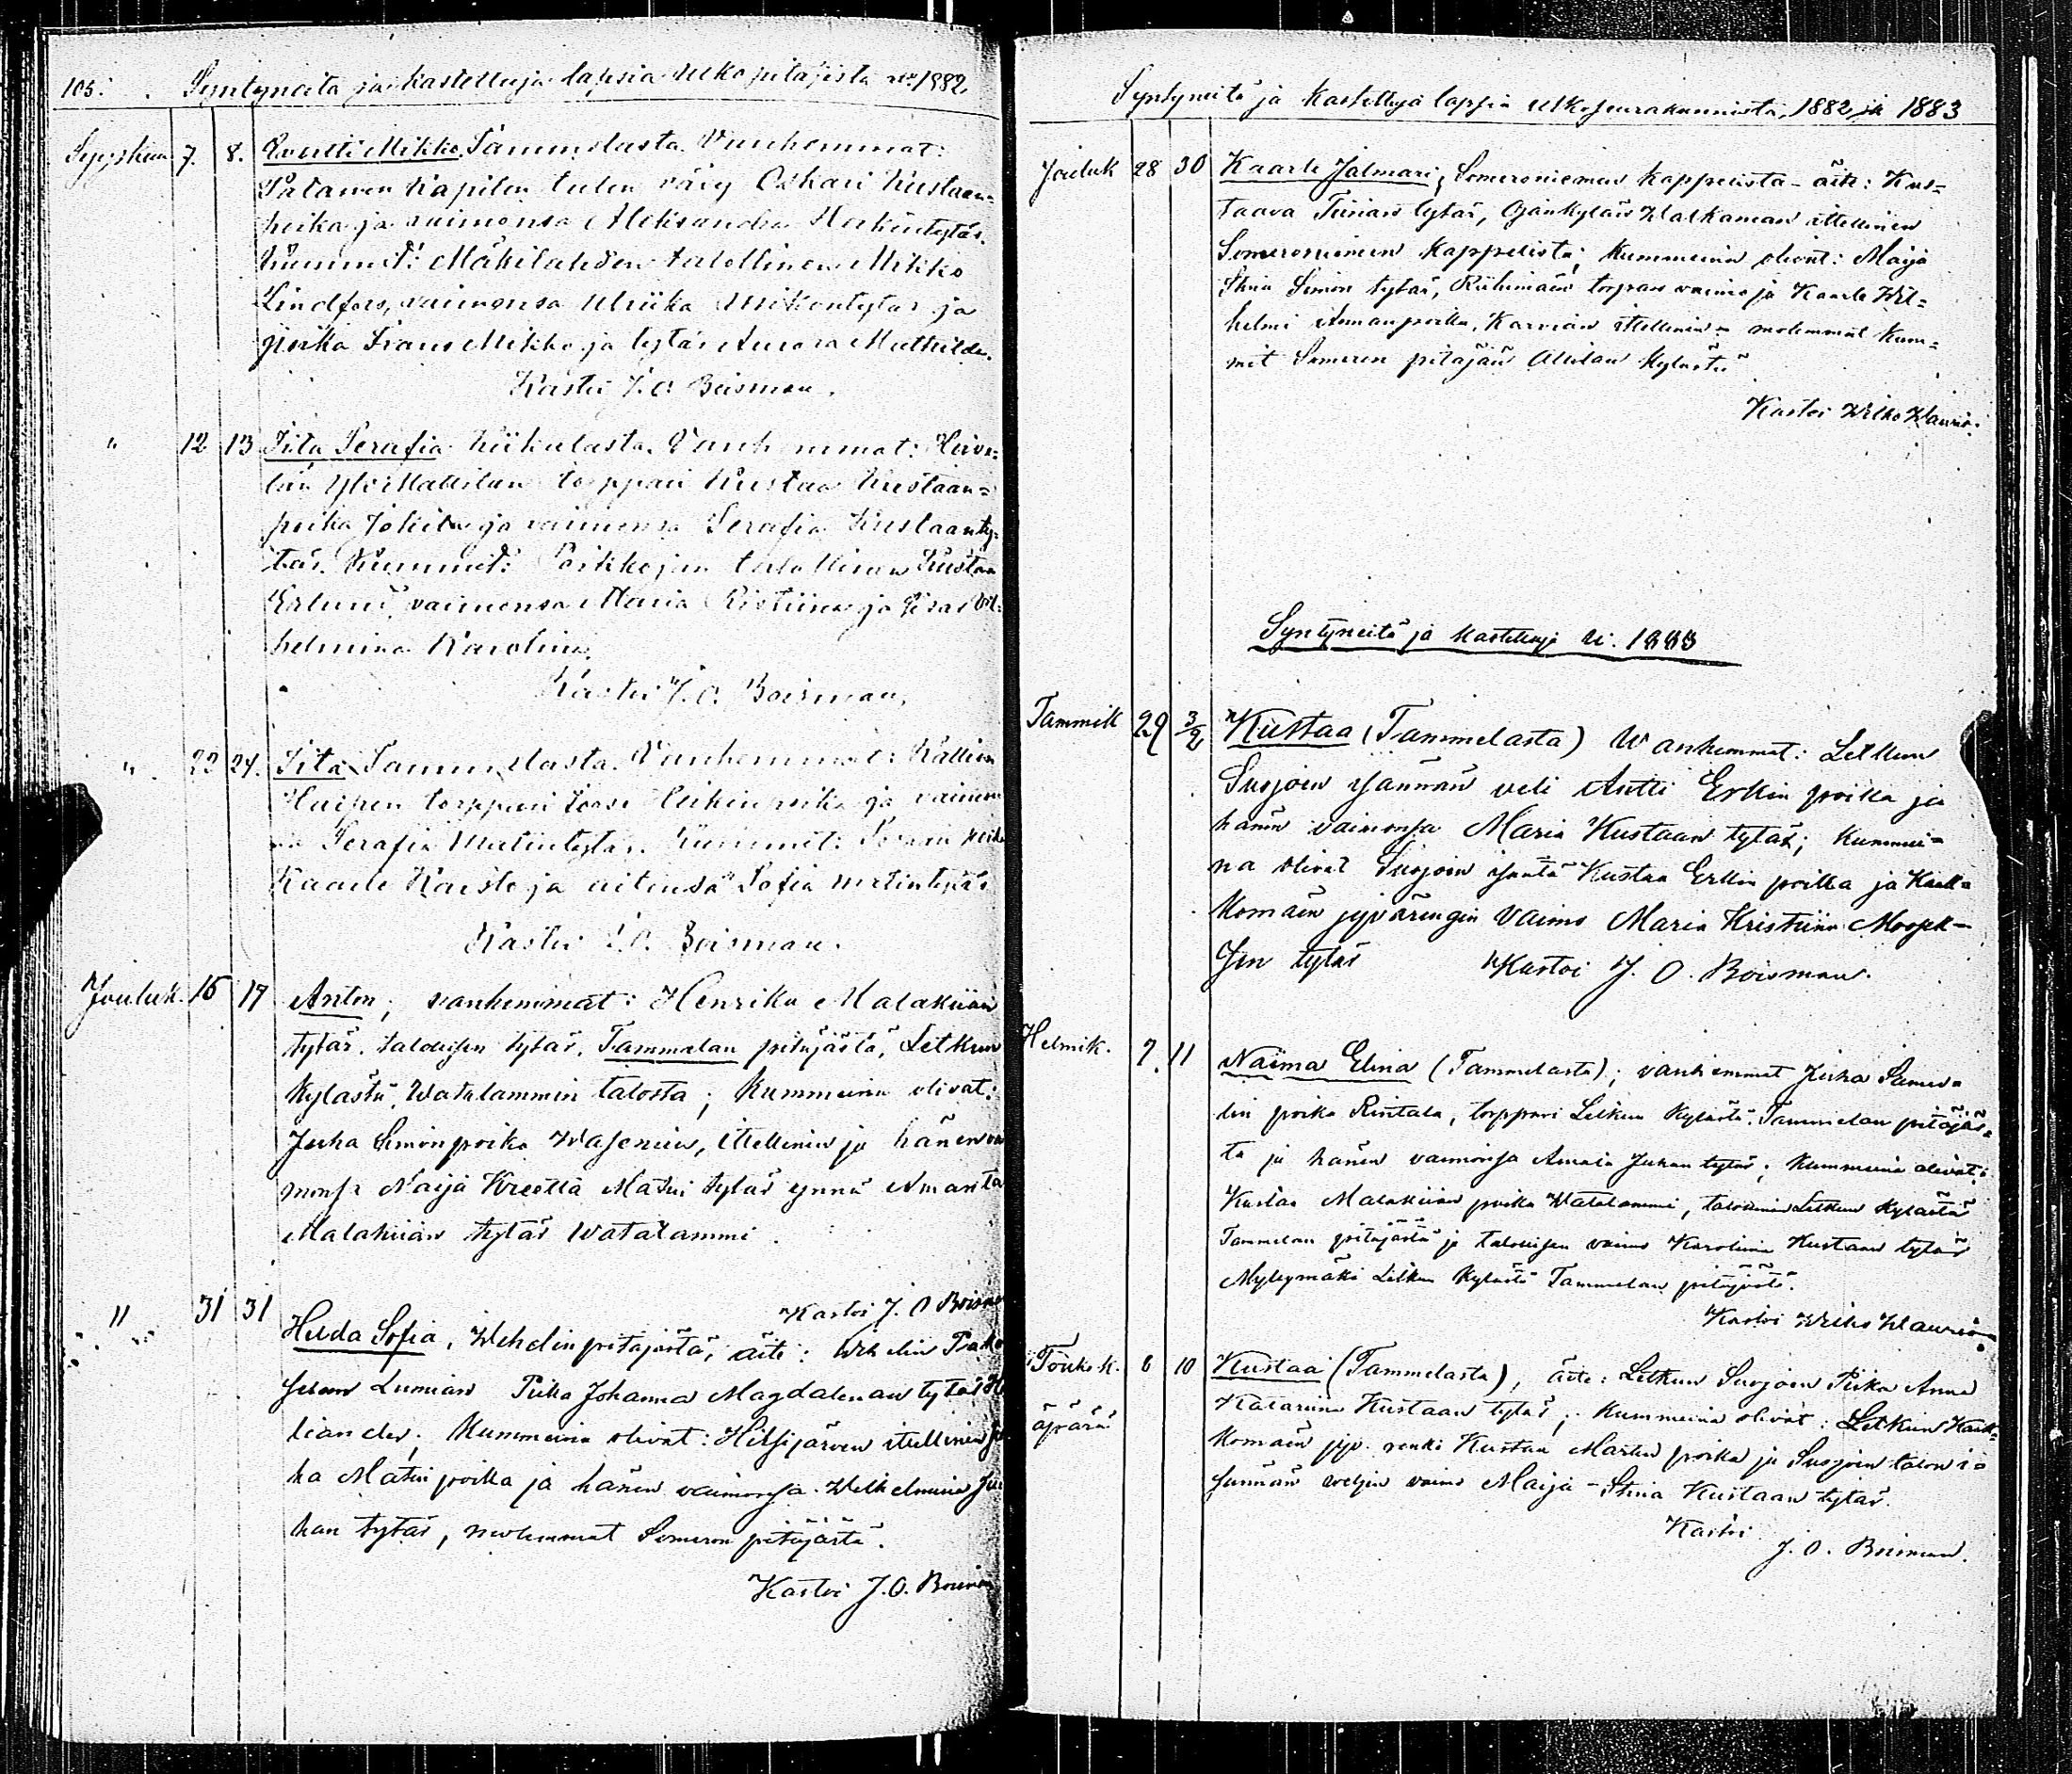 105. Syntyneitä ja kastettuja lapsia ulkopitäjistä v. 1882
Syyskuu 7. 8. Evertti Mikko. Tammelasta. Vanhemmat:
Kapilan tulen väiy Oskari Kustaan=
poika ja vaimonsa Aleksandra Herkintytär.
Kummit: Mäkilahden talollinen Mikko
Lindfors, vaimonsa Ulriika Mikontytär ja
poika Frans Mikko ja tytär Aurora Mathilda.
Kastoi J. O. Boisman.
" 12 13 Iita Serafia Kiikalasta. Vanhemmat: Hirve=
län Yli Mattilan torppari Kustaa Kustaan=
poika Jokita ja vaimonsa Serafia Kustaanty=
tär. Kummit: Porkkejan talollinen Kustaa
Erlund, vaimonsa Maria Ristiina ja Vil=
helmina Karolina.
Kastoi J. O. Boisman.
" 23 24. Iita Tammelasta. Vanhemmat: Kallion
torppari ja vaimon
sa Serafia Matintytär. Kummit: poika
Kaarle ja äitinsä Sofia Matintytär
Kastoi J. O. Boisman.
Jouluk. 16 17 Anton; vanhemmat: Henrika Malakiian
tytär, talollisen tytär, Tammelan pitäjästä, Letkun
kylästä, Watalammin talosta; Kummeina olivat:
Juha Simonpoika Wasenius, ittellinen ja hänen vai
monsa Maija Kreetta Matin tytär ynnä Amanta
Malakiian tytär Watalammi.
Kastoi J. O Boisman
" 31 31 Hilda Sofia, Wihdin pitäjästä, äiti: Wihdin
Lumian Piika Johanna Magdalenan tytär He
liander; Kummeina olivat: Hitsijärven ittellinen Ju
ha Matin poika ja hänen vaimonsa Wilhelmina Ju
han tytär, molemmat Someron pitäjästä.
Kastoi J. O. Boisman
Syntyneitä ja kastettuja lapsia ulkoseurakunnista, 1882 ja 1883
Jouluk 28 30 Kaarle Jalmari, Someroniemen kappelista - äiti: Kus=
taava Tiinan tytär, Ojankylän Walkaman ittellinen
Someroniemen kappelista; kummeina olivat: Maija
Stina Simon tytär, Riihimäen torpan vaimo ja Kaarle Wil=
helmi Annanpoika, Karvian ittellinen - molemmat kum=
mit Someren pitäjän Ollilan kylästä
Kastoi Wilho Waurio.
Syntyneitä ja kastettuja v. 1883
Tammik 29 3/2 Kustaa (Tammelasta) Wanhemmat: Letkun
Suojoin isännän veli Antti Erkin poika ja
hänen vaimonsa Maria Kustaan tytär; kummei=
na olivat Suojoin isäntä Kustaa Erkin poika ja Kauk=
komäen jyvärengin vaimo Maria Kristiina Moosek=
sen tytär Kastoi J. O. Boisman.
Helmik. 7. 11 Naima Elina (Tammelasta); vanhemmat Juha Samue=
lin poika Rintala, torppari Letkun kylästä, Tammelan pitäjäs=
tä ja hänen vaimonsa Amalia Juhan tytär; kummeina olivat:
Kustaa Malakiian poika Watalammi, talollinen Letkun kylästä
Tammelan pitäjästä ja talollisen vaimo Karoliina Kustaan tytär
Myllymäki Letkun kylästä Tammelan pitäjästä.
Kastoi Wilho Waurio.
Toukok. 6 10 Kustaa (Tammelasta), äiti: Letkun Suojoin Piika Anna
äpärä Katariina Kustaan tytär; kummeina olivat: Letkun Kauk=
komäen jyv. renki Kustaa Martin poika ja Suojoin talon i=
sännän veljen vaimo Maija-Stina Kustaan tytär.
Kastoi
J. O. Boisman.